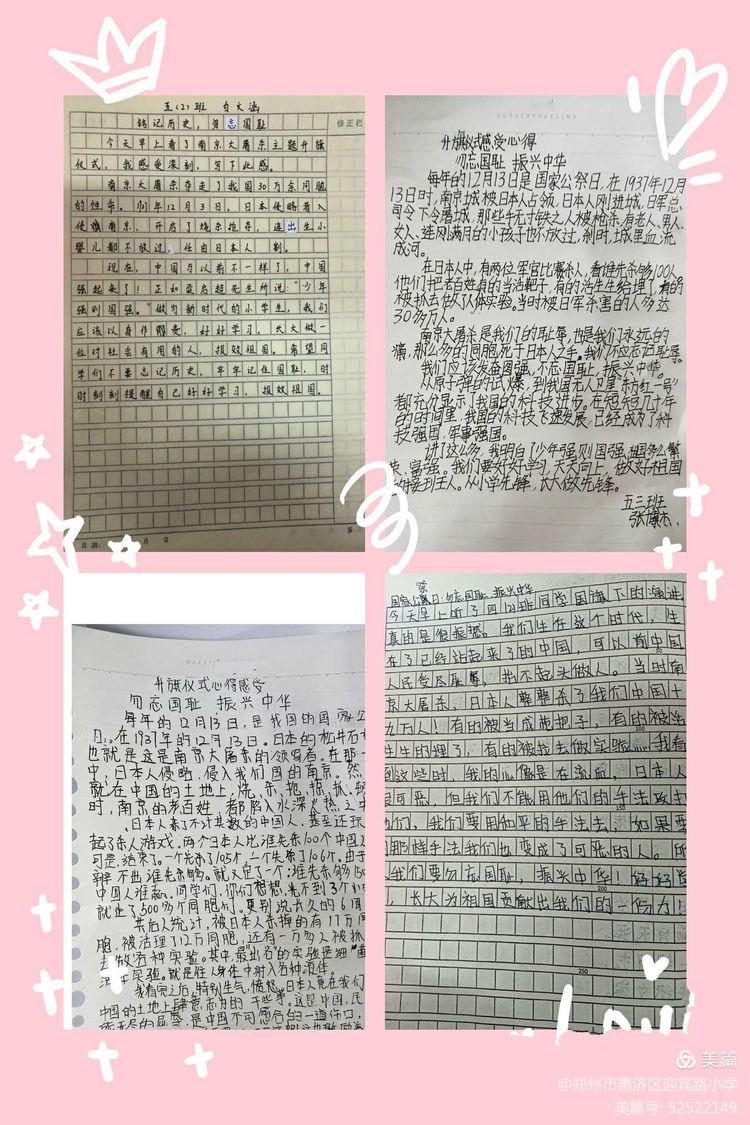 五(2)班 白文涵
铭记历史，勿忘国耻
修正栏
今天早上看了南京大屠杀主题升旗
仪式，我感受深刻，写下此感。
南京大屠杀夺走了我国30万余同胞
的性命。年12月3日，日本侵略者入
侵南京，开启了烧杀抢夺，连出生小
婴儿都不放过，任由日本人割。
现在，中国与以前不一样了，中国
强起来了！正如梁启超先生所说：“少年
强则国强。”做为新时代的小学生，我们
应该以身作则，好好学习，长大做一
位对社会有用的人，报效祖国。希望同
学们不要忘记历史，牢牢记住国耻，时
时刻刻提醒自己好好学习，报效祖国。
日期： 月 日
第
升旗仪式感受心得
勿忘国耻 振兴中华
每年的12月13日是国家公祭日，在1937年12月
13日时，南京城被日本人占领，日本人刚进城，日军总
司令下令屠城，那些手无寸铁之人被枪杀，有老人、男人、
女人、连刚满月的小孩子也不放过，刹时，城里血流
成河。
在日本人中，有两位军官比赛杀人，看谁先杀够100人，
他们把老百姓有的当活靶子，有的活生生给埋了，有的
被抓去做了人体实验。当时被日军杀害的人多达
30多万人。
南京大屠杀是我们的耻辱，也是我们永远的
痛，那么多的同胞死于日本人之手。我们不应忘记耻辱。
我们应该发奋图强，不忘国耻，振兴中华。
从原子弹的试爆，到我国无人卫星“东方红一号”
都充分显示了我国的科技进步。在短短几十年
的时间里，我国的科技飞速发展，已经成为了科
技强国，军事强国。
讲了这么多，我明白了少年强则国强，祖国多么繁
荣、富强。我们要好好学习，天天向上，做好祖国
的接班人。从小学先锋，长大做先锋。
五三班
张博杰
升旗仪式心得感受
勿忘国耻 振兴中华
每年的12月13日，是我国的国家公
日。在1937年的12月13日。日本的松井石
也就是这是南京大屠杀的领袖者。在那一
中，日本人侵略，侵入我们国的南京。然
就在中国的土地上，烧、杀、抢、掠、抓、
时，南京的老百姓，都陷入水深火热之中
日本人杀了不计其数的中国人，甚至还玩
起了杀人游戏。两个日本人比谁先杀100个中国人
可是，结束了。一个先杀了105个，一个先杀了106个。由于
辨不出谁先杀够。就又定了一个：谁先杀够150
中国人谁赢，同学们，你们想想，光不到3个小时
就走了500多个同胞们。更别说长久的6周
共后人统计，被日本人杀掉的有17万同
胞，被活埋了12万同胞，还有一万多人被抓
去做各种实验。其中，最“出名”的实验是细“菌
实验。就是往人身体中射入各种液体。
我看完之后，特别生气，愤怒。日本人竟在我们
中国的土地上肆意忘为的干些事。这是中国，民
族无尽的屈辱，是中国不可愈合的一道伤口，
祭
国家公日：勿忘国耻 振兴中华
今天早上听了四(2)班同学国旗下的演讲
真的是很振撼。我们生在这个时代，生
在了已经站起来了的中国，可以前中国
人民受尽耻辱，抬不起头做人。当时南
京大屠杀，日本人整整杀了我们中国十
九万人！有的被当成炮把子，有的被活
生生的埋了，有的被拉去做实验……我看
到这些时，我的心像是在流血，日本人
很可恶，但我们不能用他们的手法攻打
他们，我们要用和平的手法去，如果要
用那样手法我们也变成了可恶的人。所
我们要勿忘国耻，振兴中华！好好学
，长大为祖国贡献出我们的一份力！
美篇
@郑州市惠济区迎宾路小学
美篇号: 52522149